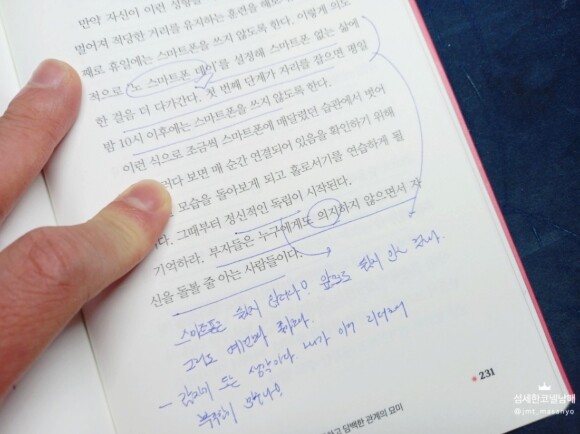 만약 자신이 이런 성향
멀어져 적당한 거리를 유지하는 훈련을 해보
제로 휴일에는 스마트폰을 쓰지 않도록 한다. 이렇게 의도
적으로 '노 스마트폰 데이'를 설정해 스마트폰 없는 삶에
한 걸음 더 다가간다. 첫 번째 단계가 자리를 잡으면 평일
밤 10시 이후에는 스마트폰을 쓰지 않도록 한다.
이런 식으로 조금씩 스마트폰에 매달렸던 습관에서 벗어
다 보면 매 순간 연결되어 있음을 확인하기 위해
모습을 돌아보게 되고, 홀로서기를 연습하게 될
다. 그때부터 정신적인 독립이 시작된다.
기억하라. 부자들은 누구에게도 의지하지 않으면서 자
신을 돌볼 줄 아는 사람들이다.
스마트폰 쉽지 않더라! 앞으로도 쉽지 않
그래도
— 갑자기 드는 생각이다. 내가 이거
231
하고 담백한 관계의 묘미
섬세한코넬남매
@jmt_macunyo